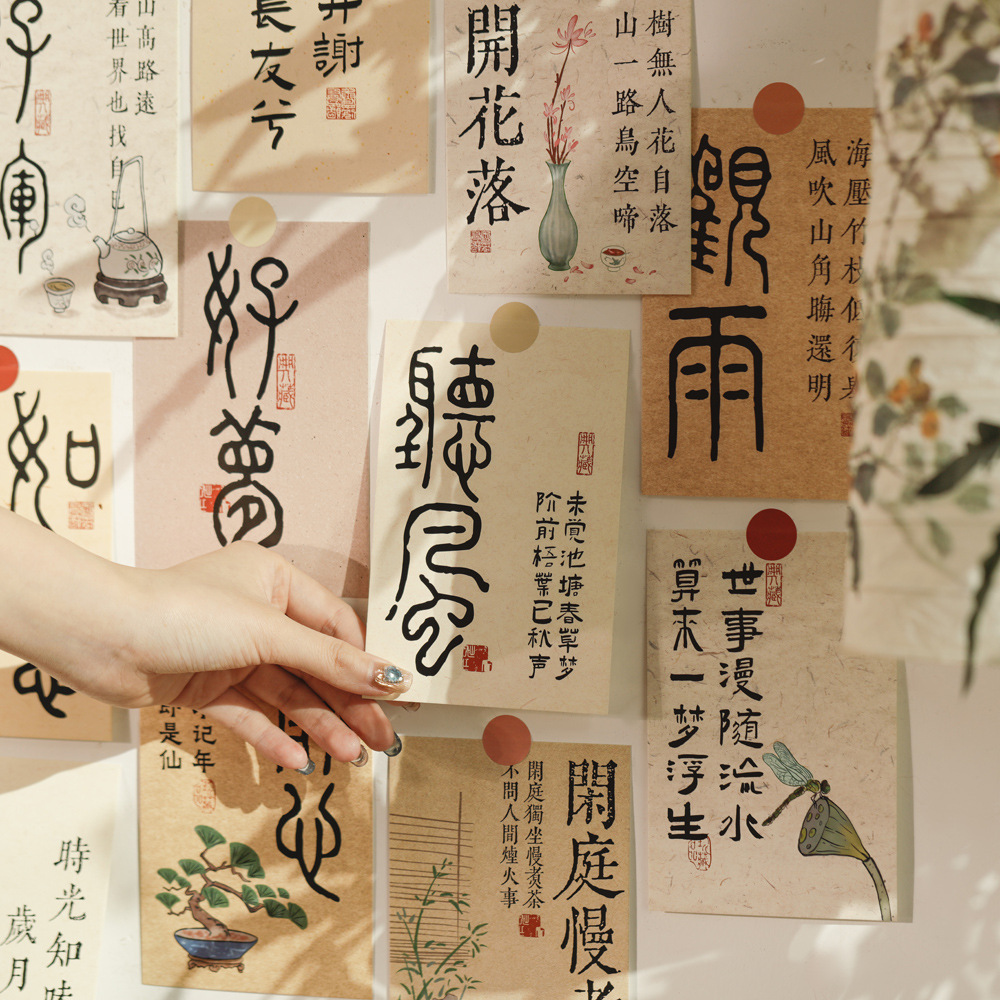 山高路遠
看世界也找自己
并謝
長友兮
樹無人花自落
山一路鳥空啼
開花落
海壓竹枝低復
風吹山角晦還明
觀雨
好夢
典藏
聽風
典藏
未觉池塘春草梦
阶前梧葉已秋声
如
世事漫随流水
算来一梦浮生
典藏
记年
即是仙
心
閑庭慢
閑庭獨坐慢煑茶
不問人間煙火事
時光知味
歲月